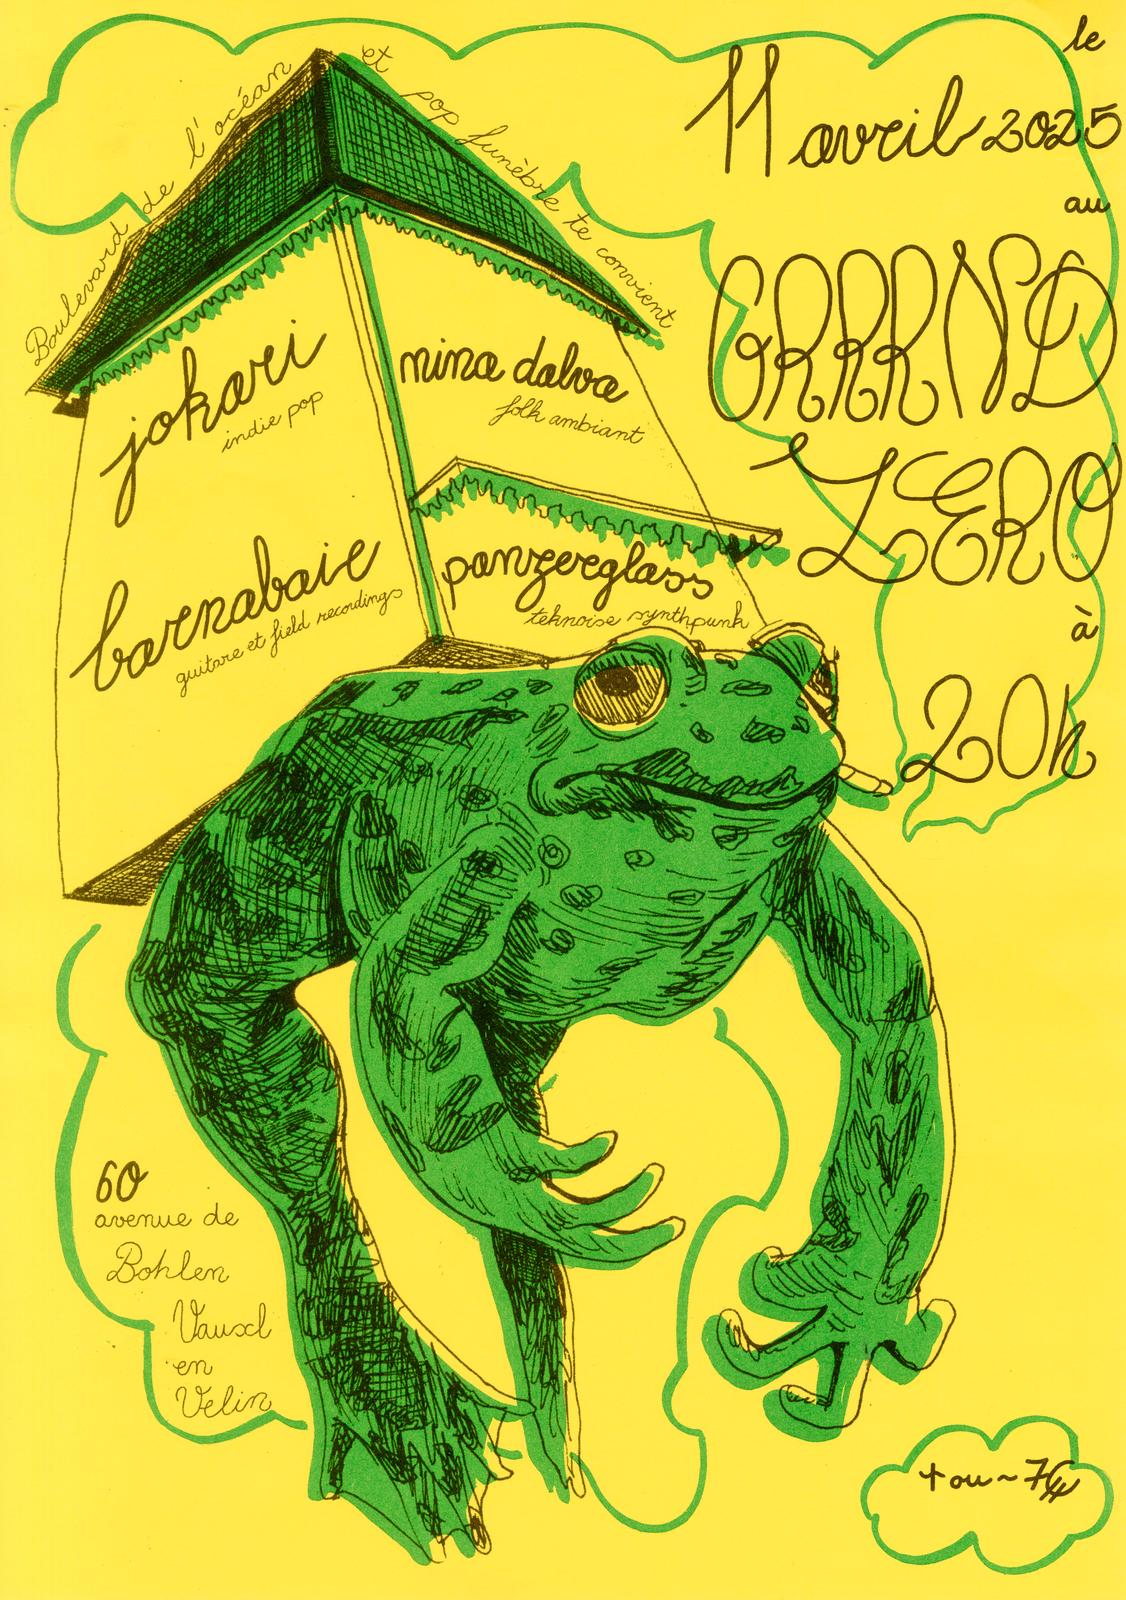 Boulevard de l'océan et pop funèbre te convient
le
11 avril 2025
au
GRRRND
ZERO
à
20h
jokari
indie pop
nina dalva
folk ambiant
barnabaie
guitare et field recordings
panzerglass
teknoise synthpunk
60
avenue de
Bohlen
Vaulx
en
Velin
+ ou ~ 7€